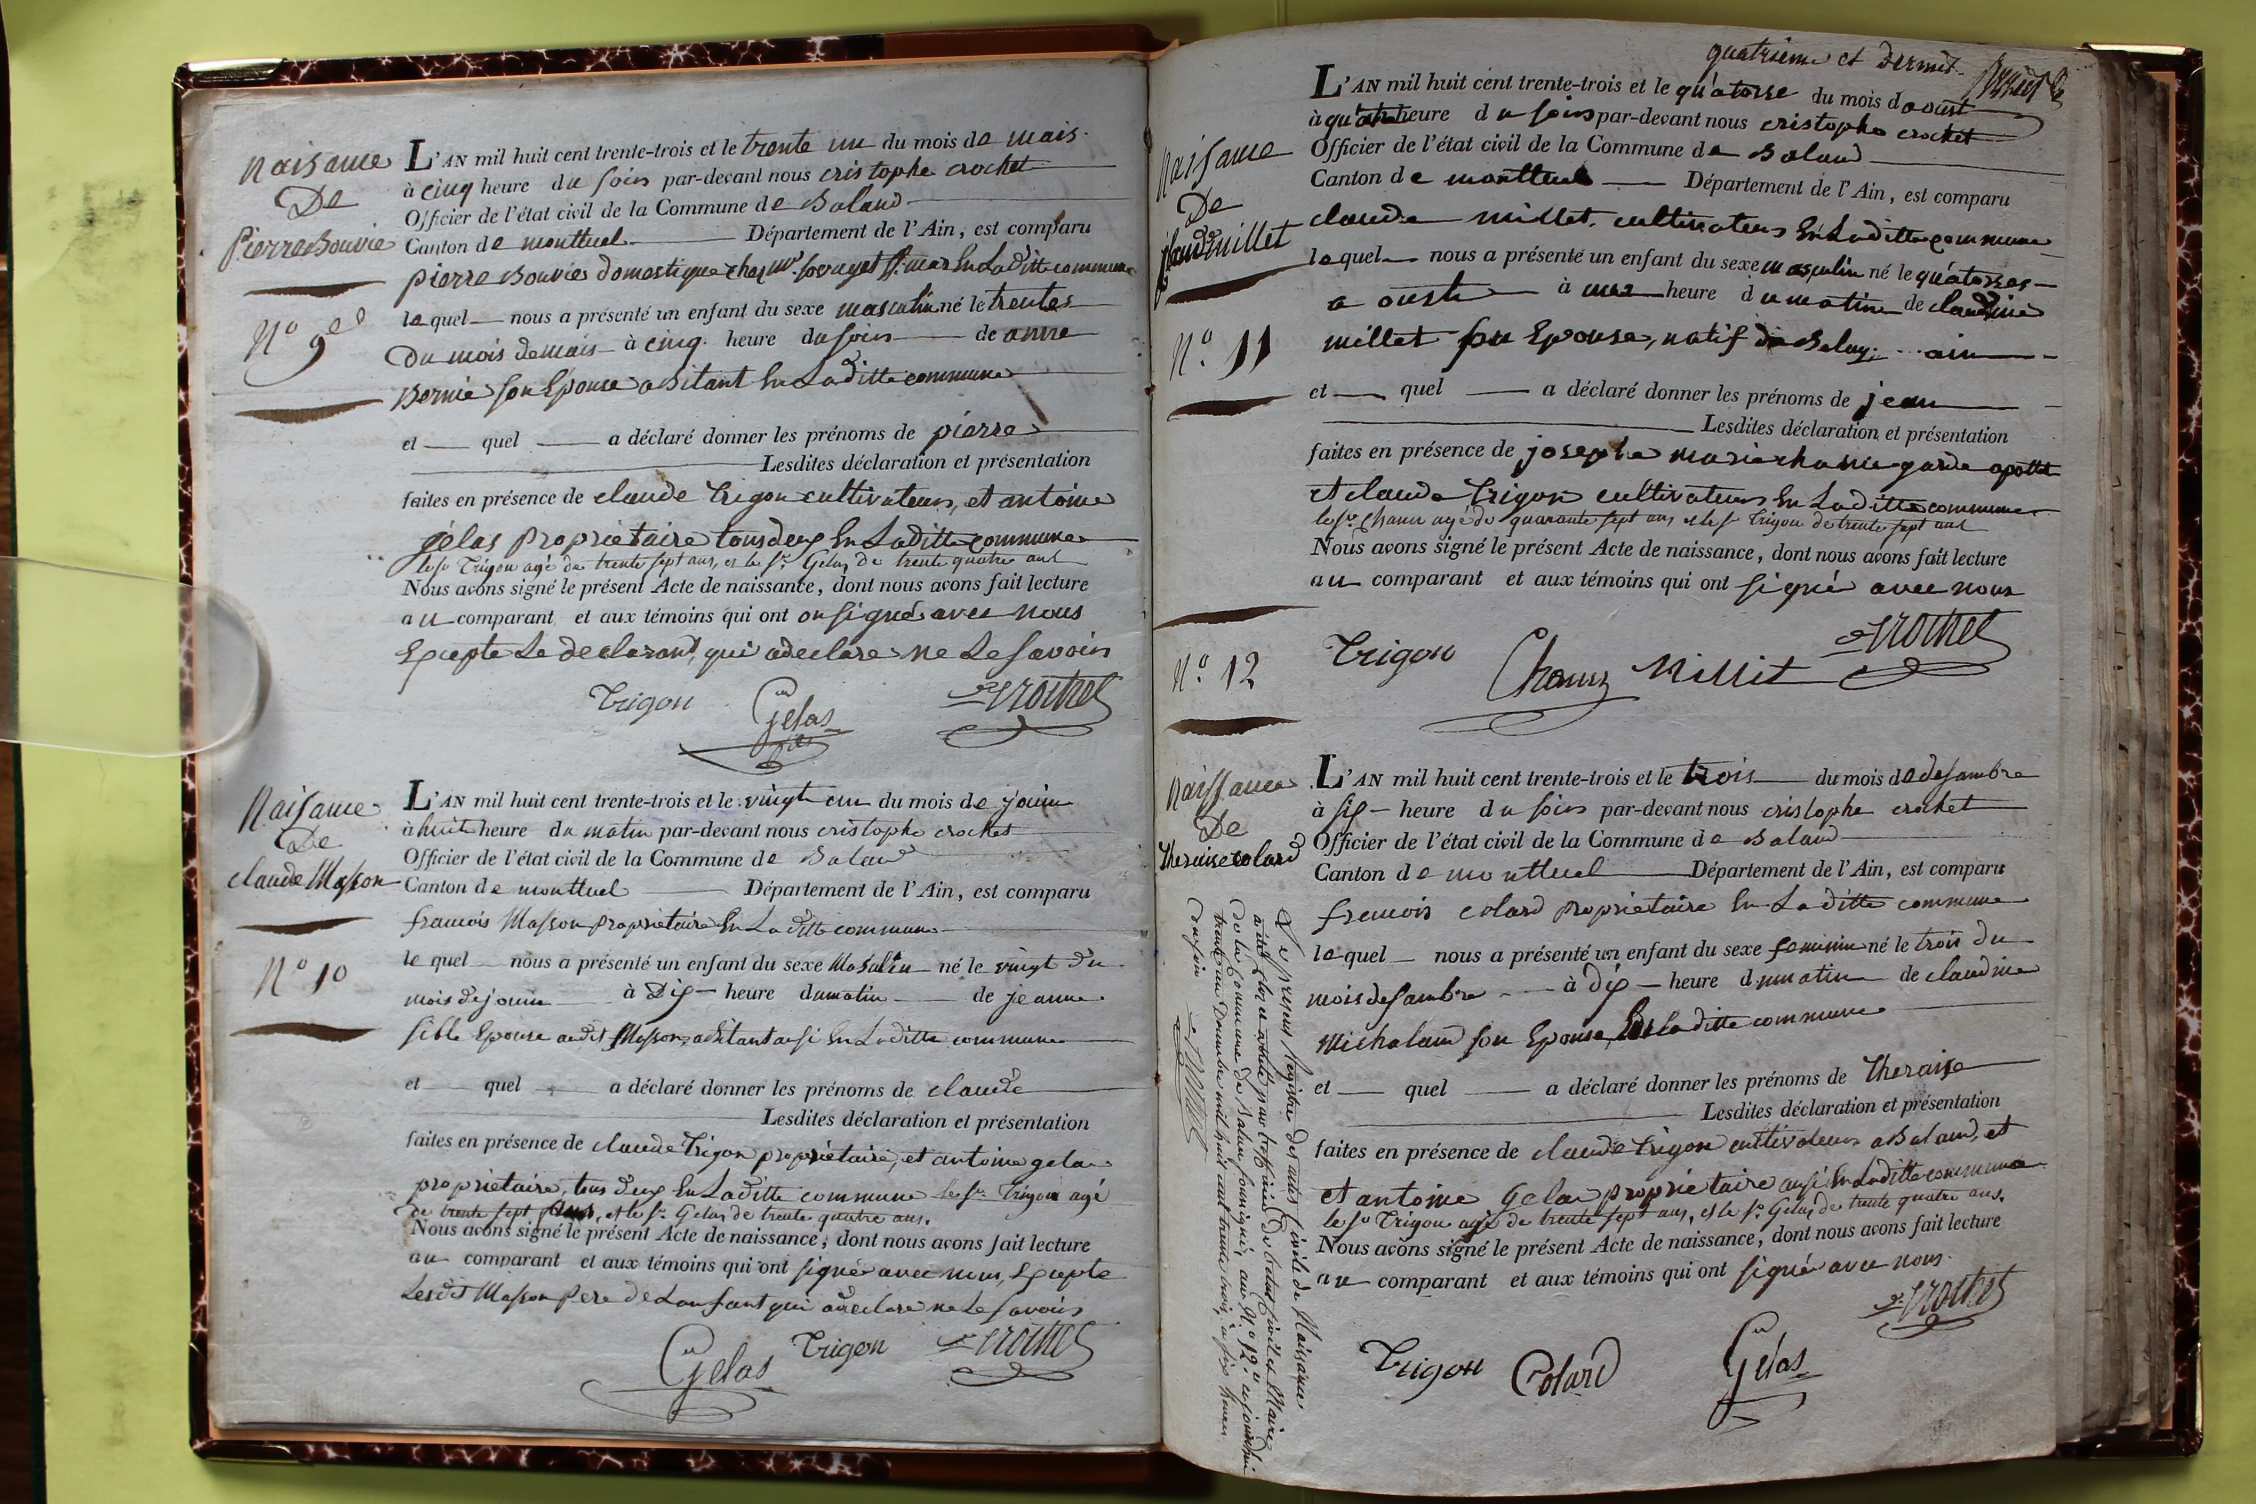 Naissance
De
Pierre Bouvie
N° 9
L'AN mil huit cent trente-trois et le trente un du mois de mais
à cinq heure du soirs par-devant nous cristophe crochet
Officier de l'état civil de la Commune de Baland
Canton de montluel Département de l'Ain, est comparu
pierre Bouvier domestique chez mr. en Laditte commune
le quel nous a présenté un enfant du sexe masculin né le trentes
du mois de mais à cinq heure du soirs de anne
Bernie son Epouse abitant En Laditte commune
et quel a déclaré donner les prénoms de pierre
Lesdites déclaration et présentation
faites en présence de claude trigon cultivateurs, et antoine
gélas propriétaire tous deux En Laditte commune
le sr. Trigon agé de trente sept ans, et le sr. Gelas de trente quatre ans
Nous avons signé le présent Acte de naissance, dont nous avons fait lecture
au comparant et aux témoins qui ont on signé avec nous
Excepte Le declarant, qui a declare ne Le Savoirs
Trigon Gelas Crochet
Naisance
De
claude Masson
N° 10
L'AN mil huit cent trente-trois et le vingt un du mois de jouin
à huit heure du matin par-devant nous cristophe crochet
Officier de l'état civil de la Commune de Baland
Canton de montluel Département de l'Ain, est comparu
francois Masson propriétaire En Laditte commune
le quel nous a présenté un enfant du sexe Masalin né le vingt du
mois de jouin à Dix heure du matin de jeanne
sible Epouse audit Masson, abitant ausi En Laditte commune
et quel a déclaré donner les prénoms de claude
Lesdites déclaration et présentation
faites en présence de claude trigon propriétaire, et antoine gelas
propriétaire, tous deux En Laditte commune le sr. Trigon agé
de trente sept ans, et le sr. Gelas de trente quatre ans.
Nous avons signé le présent Acte de naissance, dont nous avons fait lecture
au comparant et aux témoins qui ont signé avec nous, Excepte
Ledit Masson pere de Lanfant qui a declare ne Le savoirs
Gelas Trigon Crochet
quatrieme et dernier
Naisance
De
Millet
N° 11
L'AN mil huit cent trente-trois et le quatorse du mois d aoust
à quatre heure du soirs par-devant nous cristophe crochet
Officier de l'état civil de la Commune de Baland
Canton de montluel Département de l'Ain, est comparu
claude millet, cultivateurs En Laditte commune
le quel nous a présenté un enfant du sexe masculin né le quatorses
a oust à une heure du matin de claudine
millet son Epouse, natif de ain
et quel a déclaré donner les prénoms de jean
Lesdites déclaration et présentation
faites en présence de josephe marie garde
et claude trigon cultivateurs En Laditte commune
le sr. Chanu agé de quarante sept ans et le sr Trigon de trente sept ans
Nous avons signé le présent Acte de naissance, dont nous avons fait lecture
au comparant et aux témoins qui ont signé avec nous
Trigon Millit Crochet
N° 12
Naissance
De
theraise Colard
L'AN mil huit cent trente-trois et le trois du mois de desambre
à six heure du soirs par-devant nous cristophe crochet
Officier de l'état civil de la Commune de Baland
Canton de montluel Département de l'Ain, est comparu
francois colard propriétaire En Laditte commune
le quel nous a présenté un enfant du sexe feminin né le trois du
mois desambre à dix heure du matin de claudine
Michaland son Epouse, laditte commune
et quel a déclaré donner les prénoms de theraise
Lesdites déclaration et présentation
faites en présence de claude trigon cultivateurs a Baland, et
et antoine Gelas propriétaire ausi En Laditte commune
le sr Trigon agé de trente sept ans, et le sr. Gelas de trente quatre ans.
Nous avons signé le présent Acte de naissance, dont nous avons fait lecture
au comparant et aux témoins qui ont signé avec nous
Crochet
Trigon Colard Gelas
Le présent Registre des actes Civils de Naissance
a été Clos et arrêté par trois officier de l'etat Civil et Maire
de la Commune de Balan soussigné, au N° 12. cejourdhui
trente un Decembre mil huit cent trente trois, à six heures
du soir Crochet